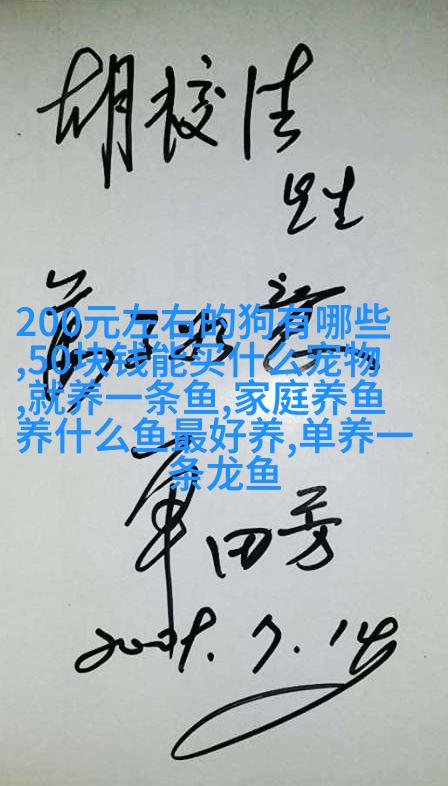 胡
200元左右的狗有哪些
,50块钱能买什么宠物
,就养一条鱼,家庭养鱼
养什么鱼最好养,单养一
条龙鱼
单田芳
7.14